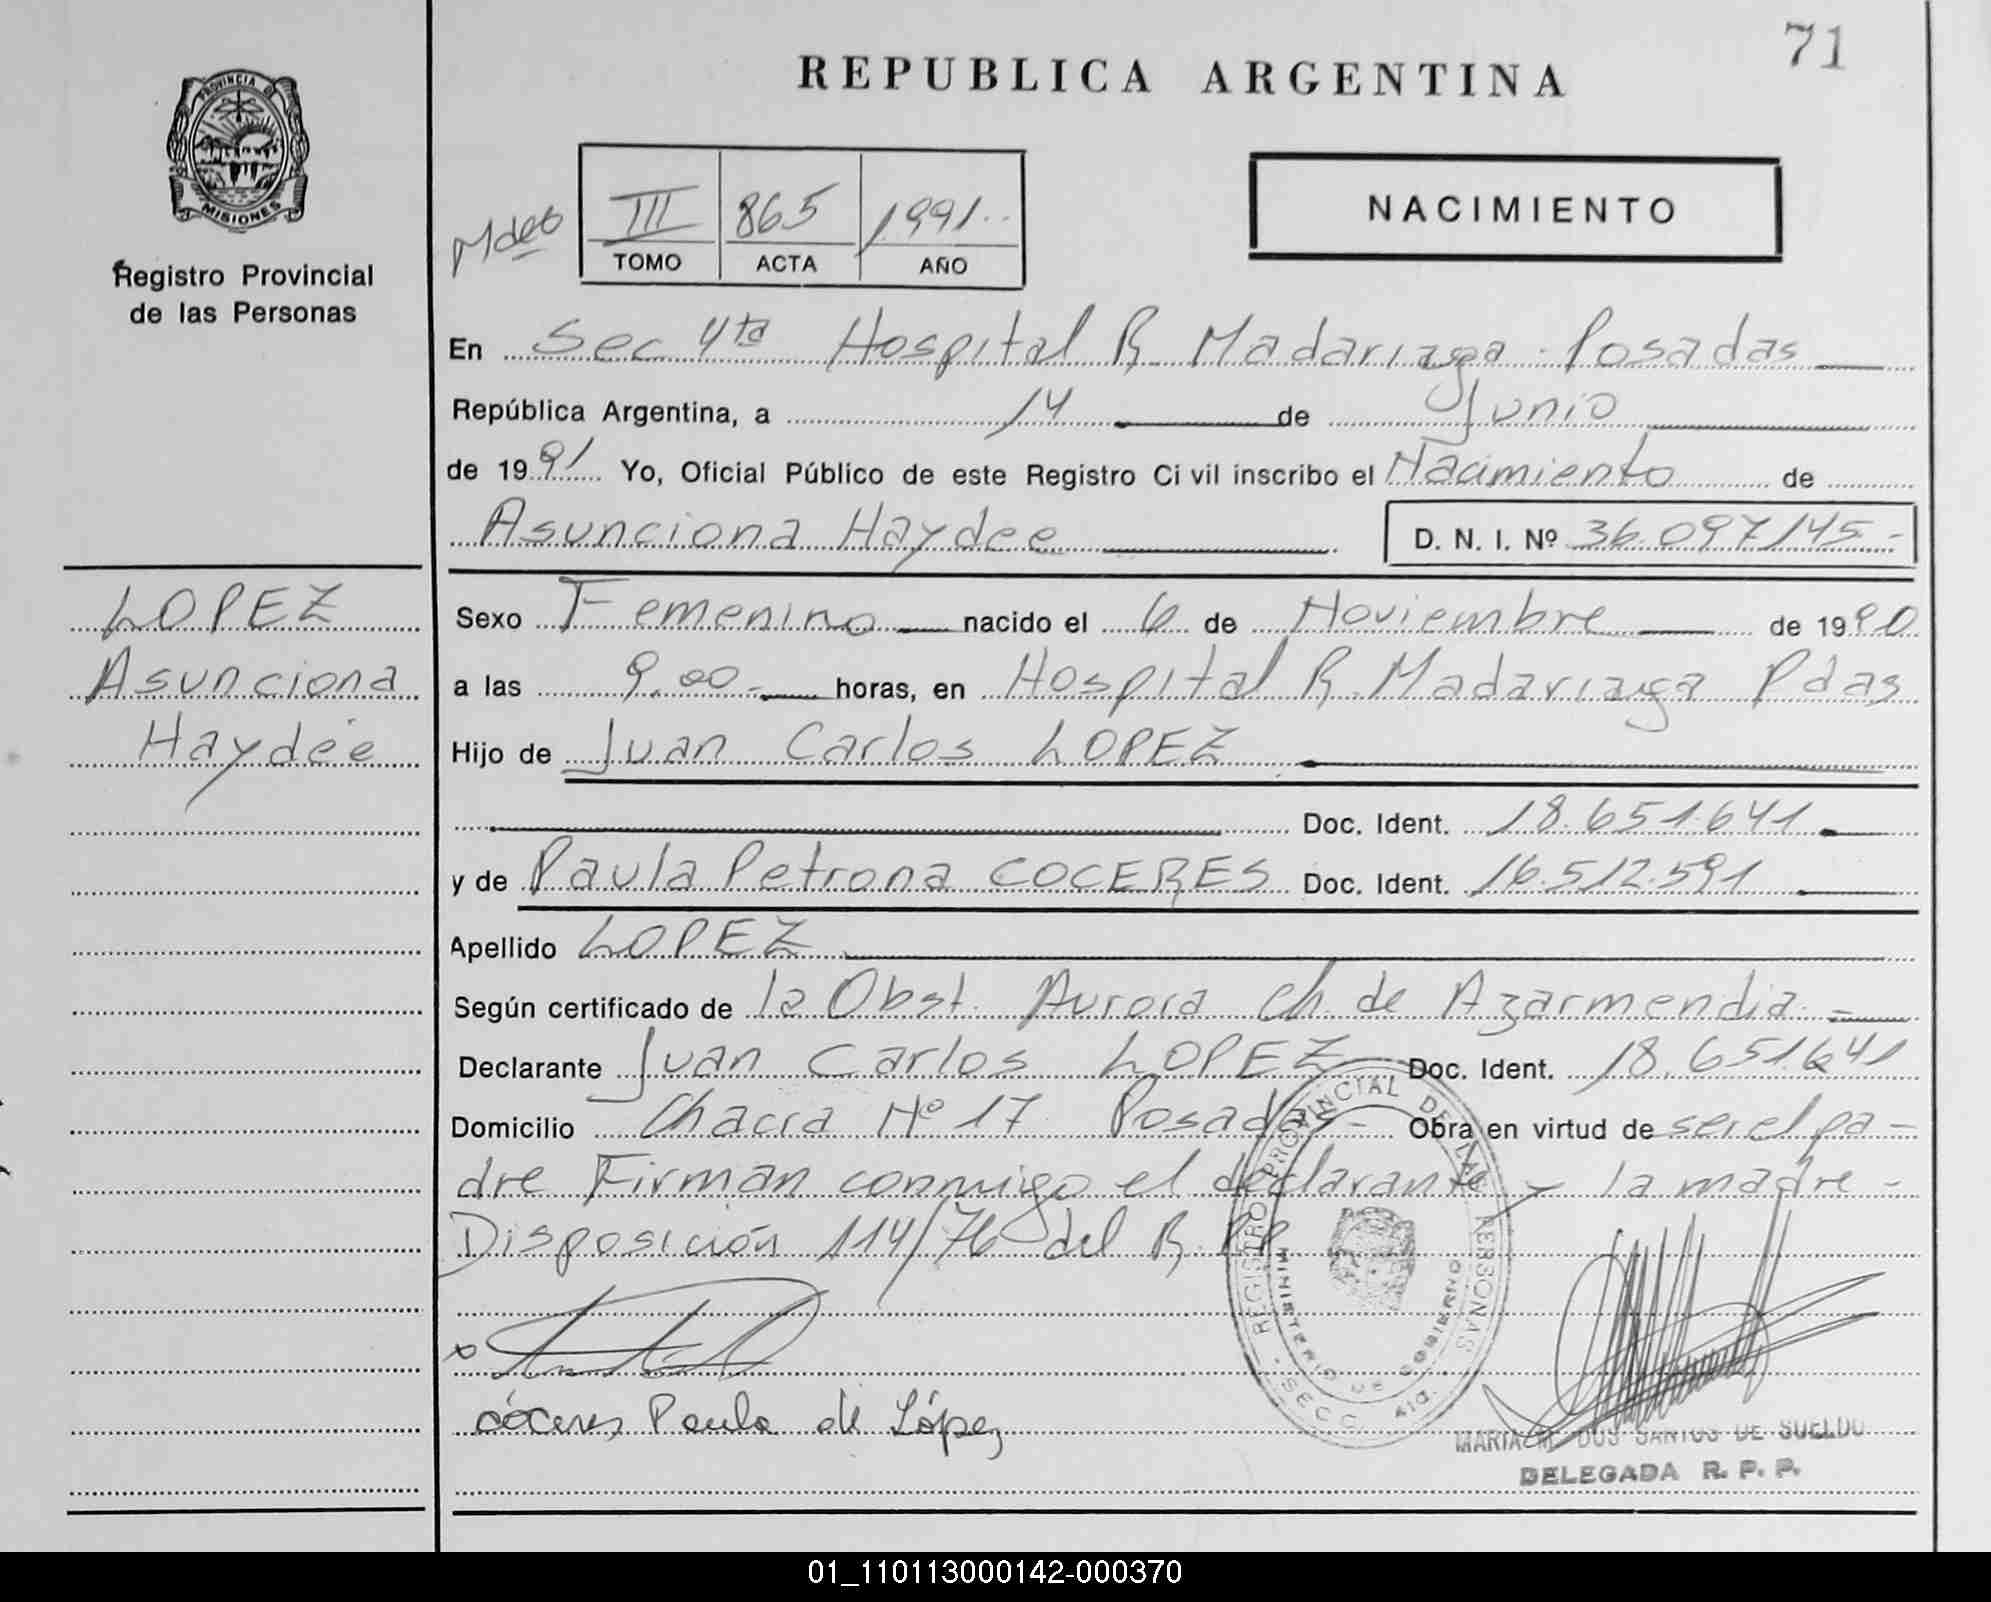 71
REPUBLICA ARGENTINA
PROVINCIA DE
MISIONES
Registro Provincial
de las Personas
III 865 1991
TOMO ACTA AÑO
NACIMIENTO
En Sec 4ta Hospital R. Madariaga - Posadas
República Argentina, a 14 de Junio
de 1991 Yo, Oficial Público de este Registro Civil inscribo el Nacimiento de
Asunciona Haydee D. N. I. Nº 36.097145.-
LOPEZ
Asunciona
Haydée
Sexo Femenino nacido el 6 de Noviembre de 1990
a las 9,00 horas, en Hospital R. Madariaga Pdas
Hijo de Juan Carlos LOPEZ
Doc. Ident. 18.651.641
y de Paula Petrona COCERES Doc. Ident. 16.512.591
Apellido LOPEZ
Según certificado de la Obst. Aurora Ch. de Azarmendia
Declarante Juan Carlos LOPEZ Doc. Ident. 18.651641
Domicilio Chacra Nº 17 Posadas - Obra en virtud de ser el pa-
dre Firman conmigo el declarante y la madre -
Disposición 114/76 del R.PP
REGISTRO PROVINCIAL DE LAS PERSONAS
MINISTERIO DE GOBIERNO
SECC. 4ta.
cóceres Paula de López
MARIA M. DOS SANTOS DE SUELDO
DELEGADA R. P. P.
01_110113000142-000370